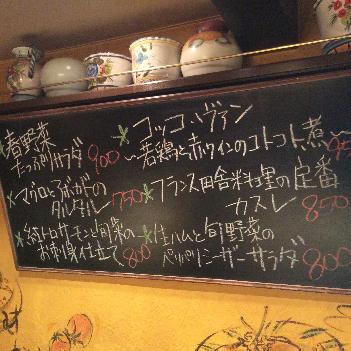 春野菜
たっぷりサラダ 900
マグロとアボカドの
タルタル 750
紅トロサーモンと旬菜の
お刺身仕立て 800
コッコ・ヴァン
〜若鶏と赤ワインのコトコト煮〜
フランス田舎料理の定番
カスレ 850
生ハムと旬野菜の
パリパリシーザーサラダ 800